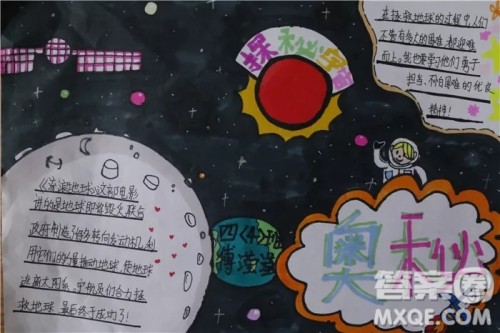 探秘宇宙
在拯救地球的过程中人们
不管有多大的困难,都迎难
而上。我也要学习他们勇于
担当、不怕困难的优良
精神!
《流浪地球》这部电影
讲的是地球即将毁灭,联合
政府制造1万多转向发动机,利
用它们的力量推动地球,使地球
逃离太阳系,宇航员们合力拯
救地球,最后终于成功了!
四〈4〉班
奥秘
答案圈
MXQE.COM